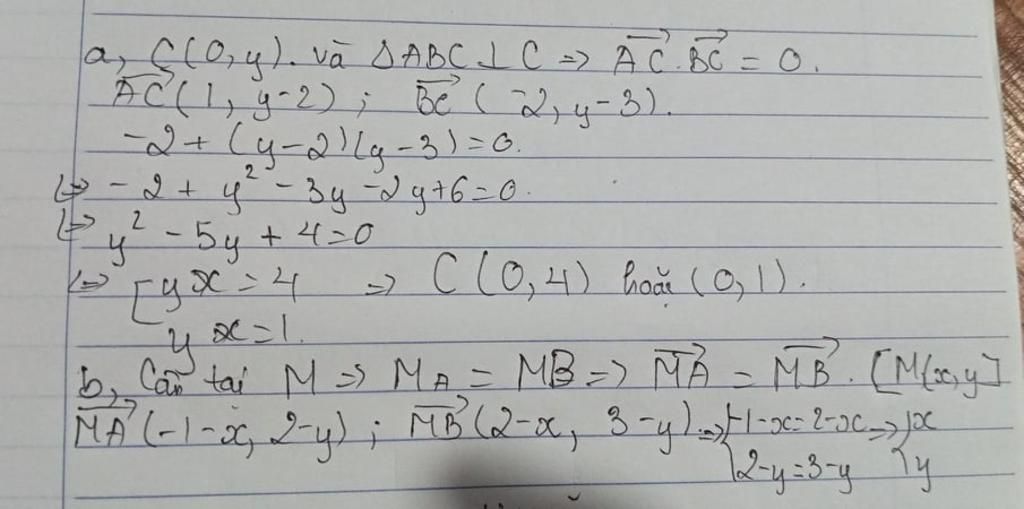 a, C(0,y). và ΔABC ⊥ C => \overrightarrow{AC}.\overrightarrow{BC} = 0.
\overrightarrow{AC}(1, y-2) ; \overrightarrow{BC} (-2, y-3).
-2 + (y-2)(y-3)=0.
<=> -2 + y² - 3y -2y+6=0.
<=> y² - 5y + 4=0
<=> [ y x = 4 => C(0,4) hoặc (0,1).
y x = 1.
b, Cân tại M => MA = MB => \overrightarrow{MA} = \overrightarrow{MB}. [M(x,y]
\overrightarrow{MA}(-1-x, 2-y) ; \overrightarrow{MB}(2-x, 3-y). => { -1-x=2-x => { x
2-y=3-y y